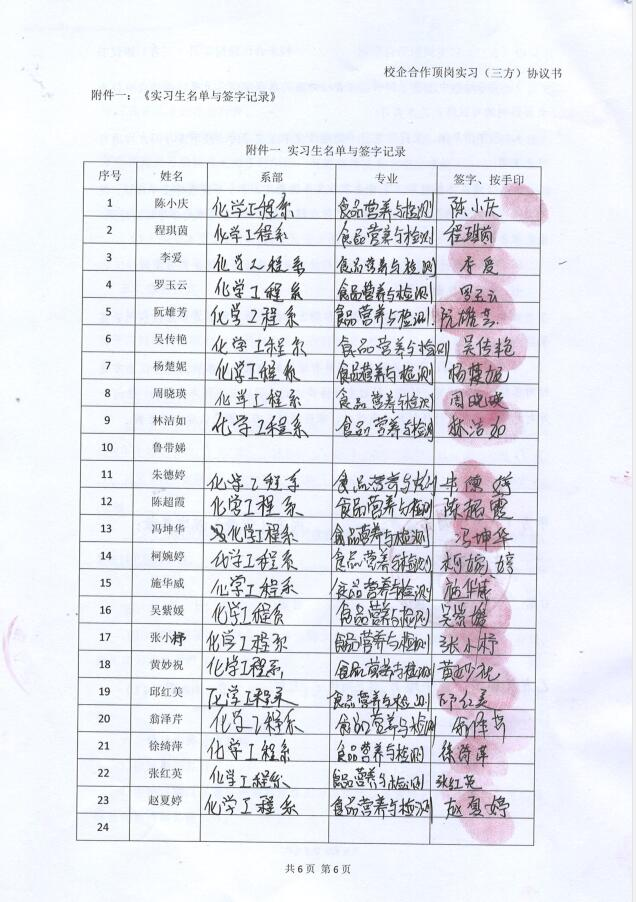 校企合作顶岗实习（三方）协议书
附件一：《实习生名单与签字记录》
附件一 实习生名单与签字记录
序号 姓名 系部 专业 签字、按手印
1 陈小庆 化学工程系 食品营养与检测 陈小庆
2 程琪茵 化学工程系 食品营养与检测 程琪茵
3 李爱 化学工程系 食品营养与检测 李爱
4 罗玉云 化学工程系 食品营养与检测 罗玉云
5 阮雄芳 化学工程系 食品营养与检测 阮雄芳
6 吴传艳 化学工程系 食品营养与检测 吴传艳
7 杨楚妮 化学工程系 食品营养与检测 杨楚妮
8 周晓瑛 化学工程系 食品营养与检测 周晓瑛
9 林洁如 化学工程系 食品营养与检测 林洁如
10 鲁带娣
11 朱德婷 化学工程系 食品营养与检测 朱德婷
12 陈超霞 化学工程系 食品营养与检测 陈超霞
13 冯坤华 化学工程系 食品营养与检测 冯坤华
14 柯婉婷 化学工程系 食品营养与检测 柯婉婷
15 施华威 化学工程系 食品营养与检测 施华威
16 吴紫媛 化学工程系 食品营养与检测 吴紫媛
17 张小桴 化学工程系 食品营养与检测 张小桴
18 黄妙祝 化学工程系 食品营养与检测 黄妙祝
19 邱红美 化学工程系 食品营养与检测 邱红美
20 翁泽芹 化学工程系 食品营养与检测 翁泽芹
21 徐绮萍 化学工程系 食品营养与检测 徐绮萍
22 张红英 化学工程系 食品营养与检测 张红英
23 赵夏婷 化学工程系 食品营养与检测 赵夏婷
24
共 6 页 第 6 页